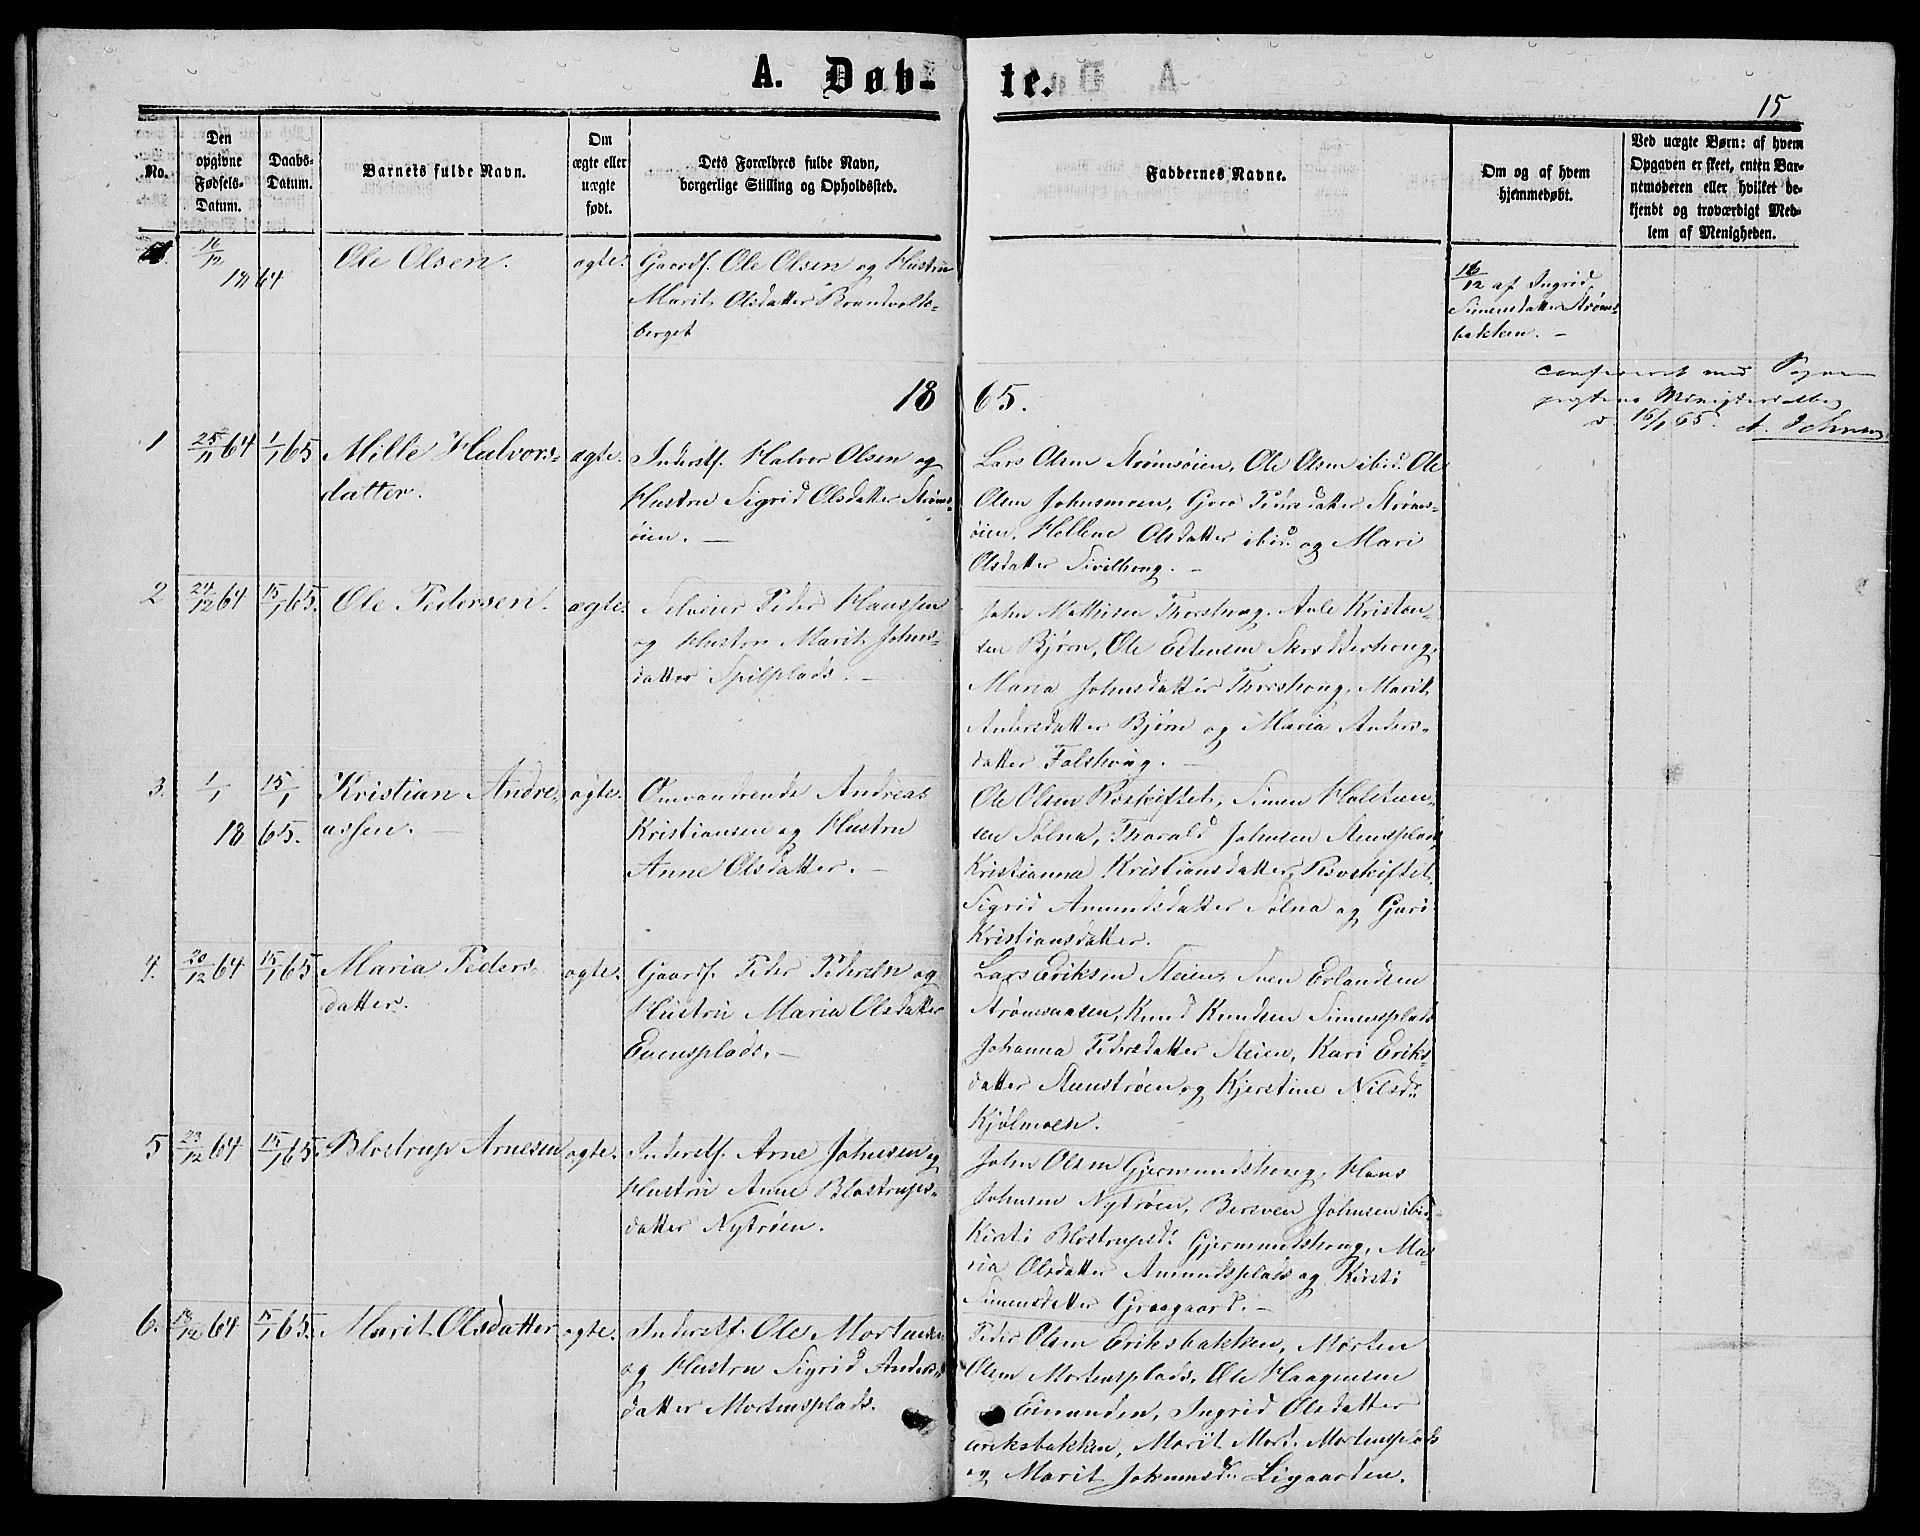 A. Døb-te.
15
No.
Den opgivne Fødsels-Datum.
Daabs-Datum.
Barnets fulde Navn.
Om ægte eller uægte født.
Dets Forældres fulde Navn, borgerlige Stilling og Opholdssted.
Faddernes Navne.
Om og af hvem hjemmedøbt.
Ved uægte Børn: af hvem Opgaven er skeet, enten Barnemoderen eller hvilket bekjendt og troværdigt Medlem af Menigheden.
16/12 1864 Ole Olsen. ægte. Gaardf. Ole Olsen og Hustru
Marit Olsdatter Brandvolds-
berget
16/12 af Ingrid
Simensdatter Strøms-
bakken. -
1865.
confereret med Sogne
prestens Ministerialbog
d. 16/1 65. A.
1 25/11 64 1/1 65 Mille Halvors-
datter.
ægte. Inderstf. Halvor Olsen og
Hustru Sigrid Olsdatter Strøms-
øien. -
Lars Olsen Strømsøien, Ole Olsen ibid. Ole
Olsen Johnsmoen, Goro Pedersdatter Strøms-
øien, Hellene Olsdatter ibid. og Mari
Olsdatter Sivilhoug. -
2 24/12 64 15/1 65. Ole Pedersen. ægte. Selveier Peder Hanssen
og Hustru Marit Johns-
datter Spilplads. -
John Mathisen Thorshoug, Avle Kristen-
sen Bjørn, Ole Estensen Skrædderhoug,
Maria Johnsdatter Thorshoug, Marit
Andersdatter Bjørn og Maria Anders-
datter Falshoug. -
3. 1/1 15/1 1865. Kristian Andre-
assen. -
ægte. Omvandrende Andreas
Kristiansen og Hustru
Anne Olsdatter. -
Ole Olsen Røskiftet, Simen Halsten-
sen Sølna, Thorald Johnsen Stensplads
Kristianna Kristiansdatter, Røskiftet,
Sigrid Amundsdatter Sølna og Guri
Kristiansdatter.
4. 20/12 64 15/1 65 Maria Peders-
datter.
ægte. Gaardf. Peder Pedersen og
Hustru Maria Olsdatter
Evensplads. -
Lars Eriksen Steien, Sven Erlandsen
Strømsaasen, Knud Knudsen Simensplads
Johanna Pedersdatter Steien, Kari Eriks-
datter Stenstrøen og Kjerstine Nilsd.
Kjølmoen.
5 23/12 64 15/1 65. Blostrup Arnesen ægte. Inderstf. Arne Johnsen og
Hustru Anne Blostrups-
datter Nytrøen.
John Olsen Gjermundshoug, Hans
Johnsen Nytrøen, Bersven Johnsen ibid.
Kirsti Blostrupsd. Gjermundshoug, Ma-
ria Olsdatter Amundsplads og Kirsti
Simensdatter Graagaard. -
6. 18/12 64 15/1 65. Marit Olsdatter ægte. Inderstf. Ole Mortensen
og Hustru Sigrid Anders-
datter Mortensplads.
Peder Olsen Eriksbakken, Morten
Olsen Mortensplads, Ole Haagensen
Eimunden, Ingrid Olsdatter
Eriksbakken, Marit Mort. Mortensplads
og Marit Johannesd. Ligaarden.